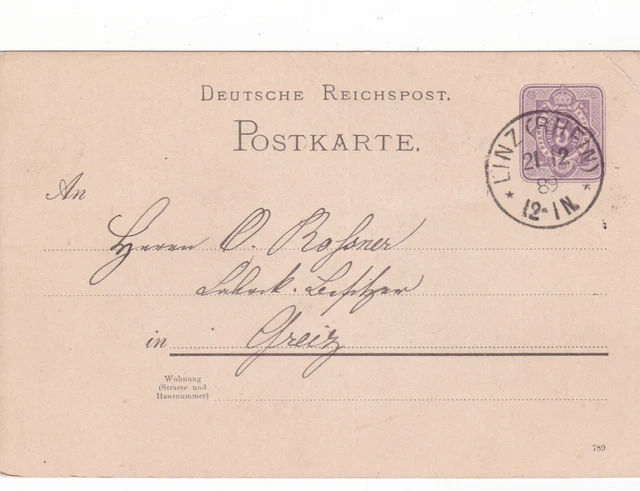 DEUTSCHE REICHSPOST.
POSTKARTE.
LINZ (RHEIN)
21 12
89
12-1 N.
An
Herrn O. Roßner
Fabrik-Besitzer
in Greiz
Wohnung
(Strasse und
Hausnummer)
789